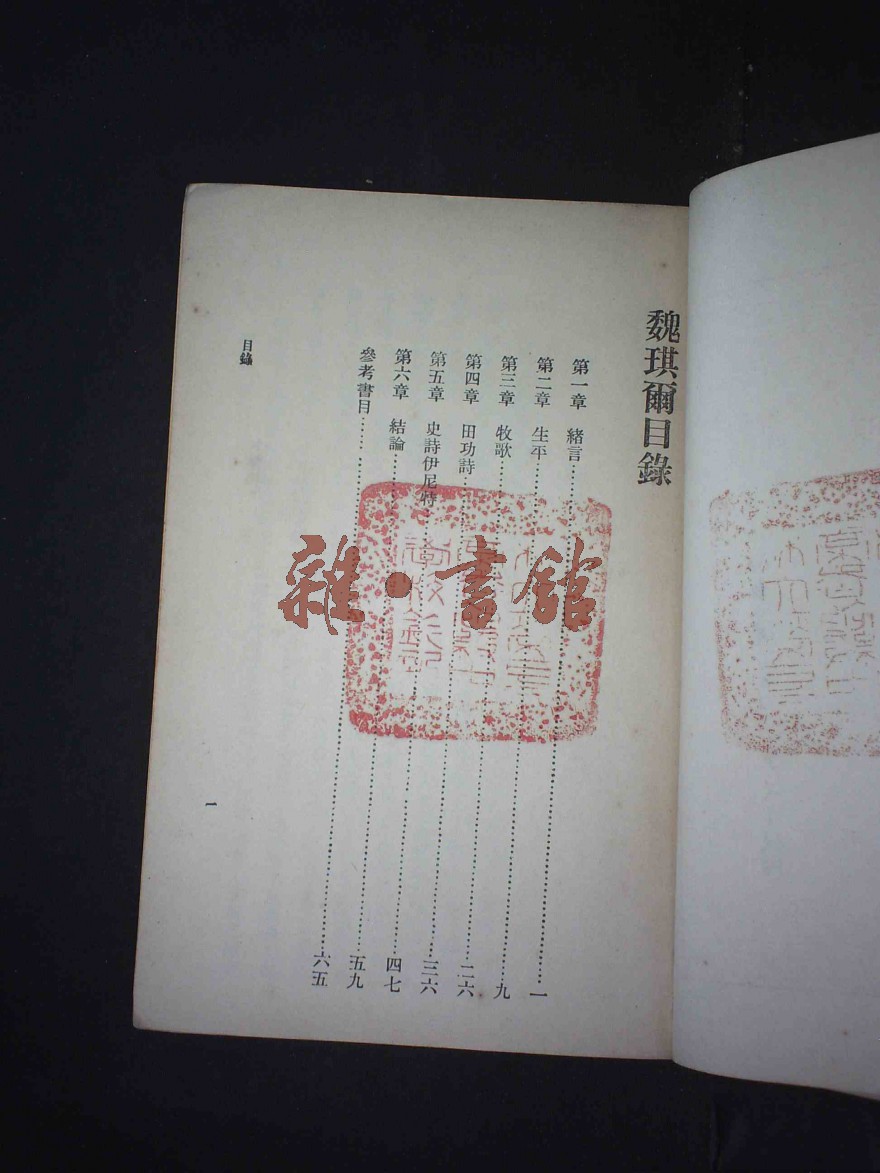 魏琪爾目錄
第一章 緒言⋯⋯一
第二章 生平⋯⋯九
第三章 牧歌⋯⋯二六
第四章 田功詩⋯⋯三六
第五章 史詩伊尼特⋯⋯四七
第六章 結論⋯⋯五九
參考書目⋯⋯六五
目錄
一
雜·書館